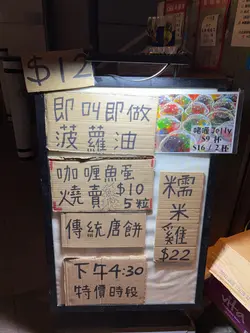 $12
即叫即做
菠蘿油
咖喱魚蛋
燒賣 $10
5粒
傳統唐餅
下午4:30
特價時段
糯
米
雞
$22
Jelly
$9/杯
$16/2杯